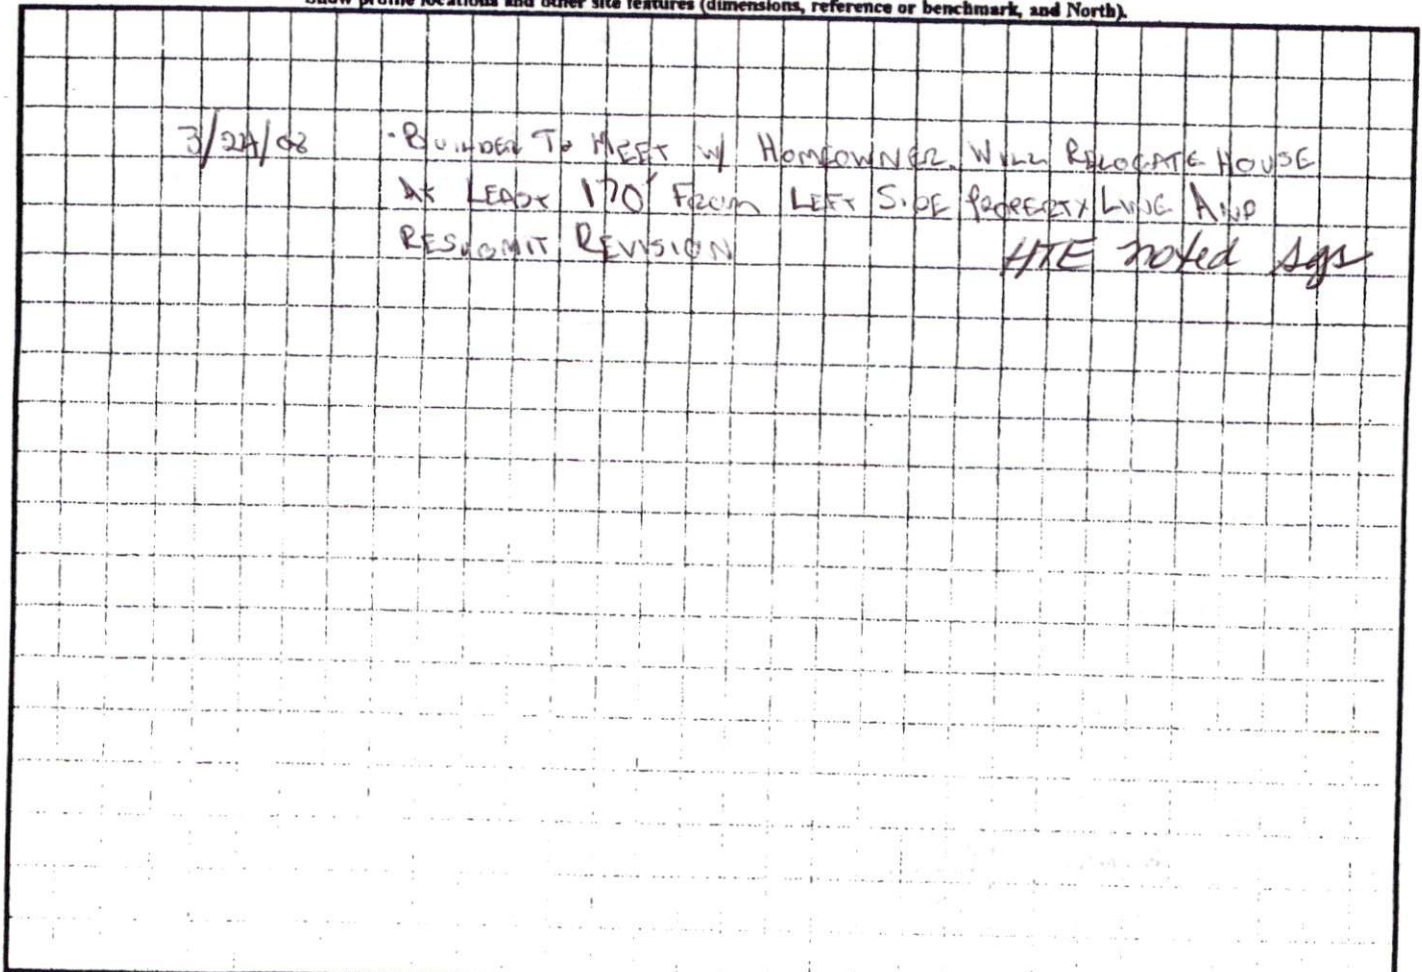 Show profile locations and other site features (dimensions, reference or benchmark, and North).
3/24/08 · BUILDER TO MEET W/ HOMEOWNER. WILL RELOCATE HOUSE
AT LEAST 170' FROM LEFT SIDE PROPERTY LINE AND
RESUBMIT REVISION HTE noted sgs